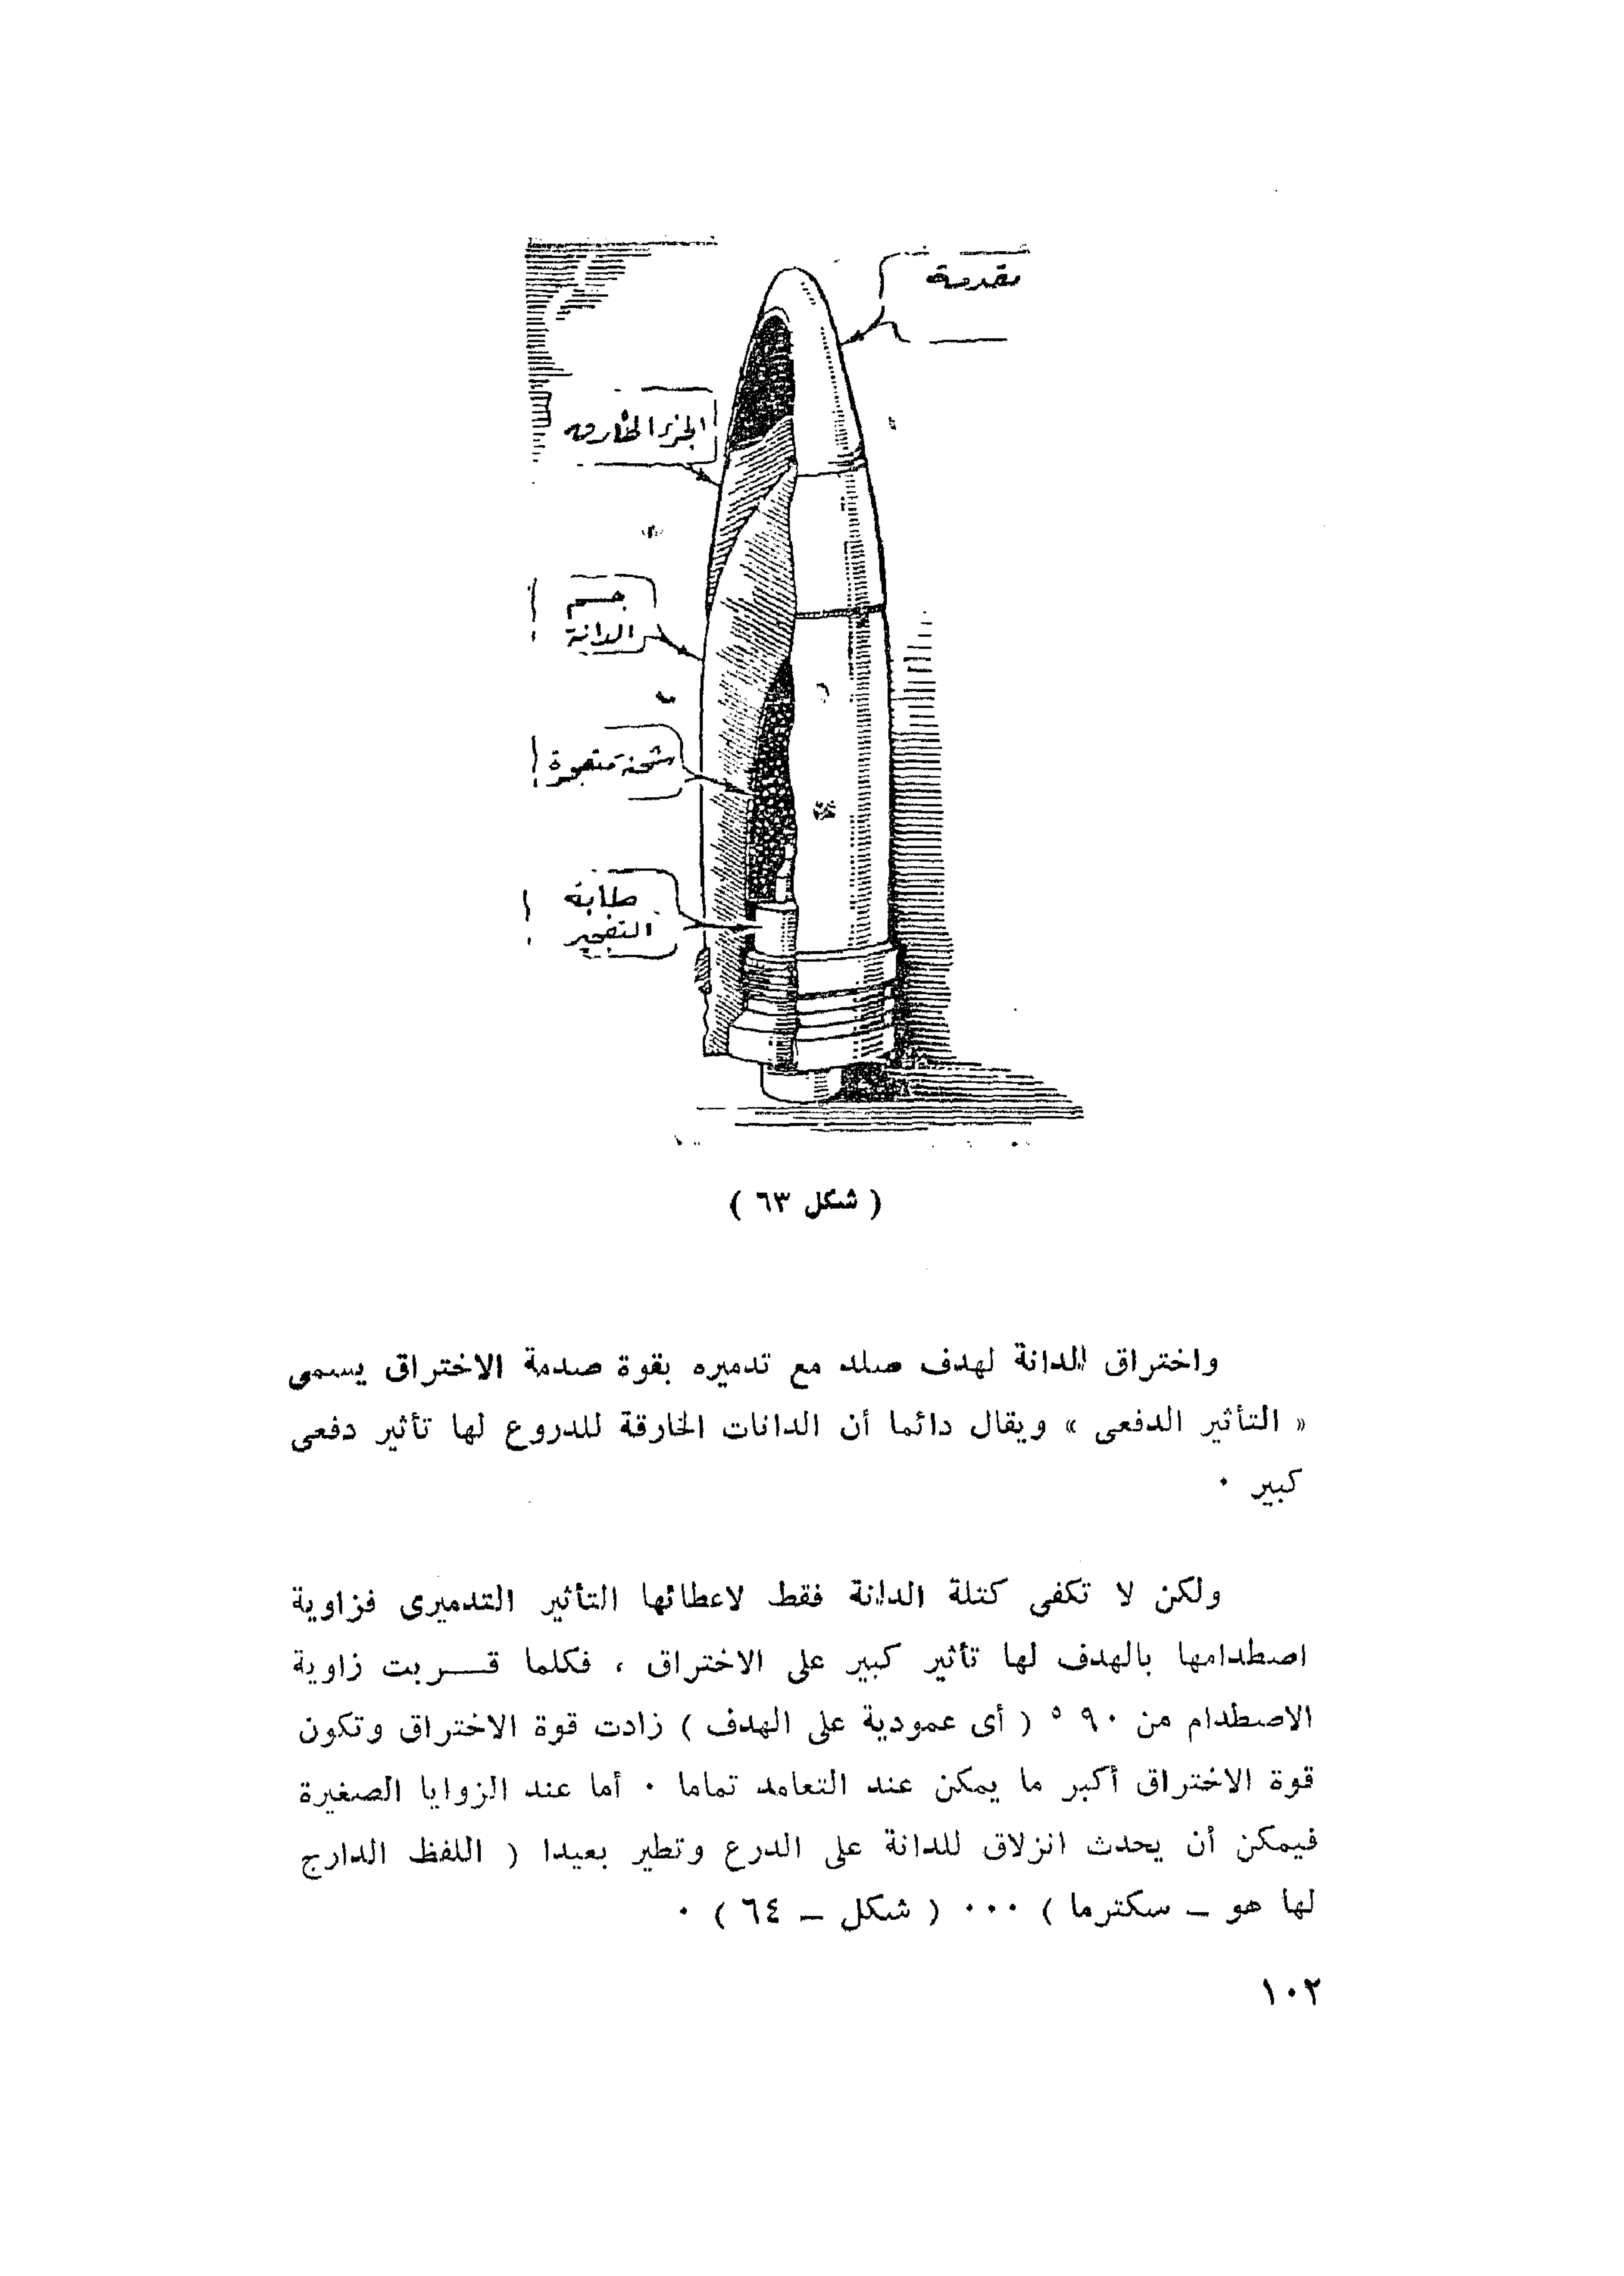 مقدمة
الجزء الخارق
جسم
الدانة
شحنة متفجرة
طابة
التفجير
( شكل ٦٣ )
واختراق الدانة لهدف صلد مع تدميره بقوة صدمة الاختراق يسمى
« التأثير الدفعى » ويقال دائما أن الدانات الخارقة للدروع لها تأثير دفعى
كبير ٠
ولكن لا تكفى كتلة الدانة فقط لاعطائها التأثير التدميرى فزاوية
اصطدامها بالهدف لها تأثير كبير على الاختراق ، فكلما قـــربت زاوية
الاصطدام من ٩٠ ° ( أى عمودية على الهدف ) زادت قوة الاختراق وتكون
قوة الاختراق أكبر ما يمكن عند التعامد تماما ٠ أما عند الزوايا الصغيرة
فيمكن أن يحدث انزلاق للدانة على الدرع وتطير بعيدا ( اللفظ الدارج
لها هو ــ سكترما ) ٠٠٠ ( شكل ــ ٦٤ ) ٠
١٠٢